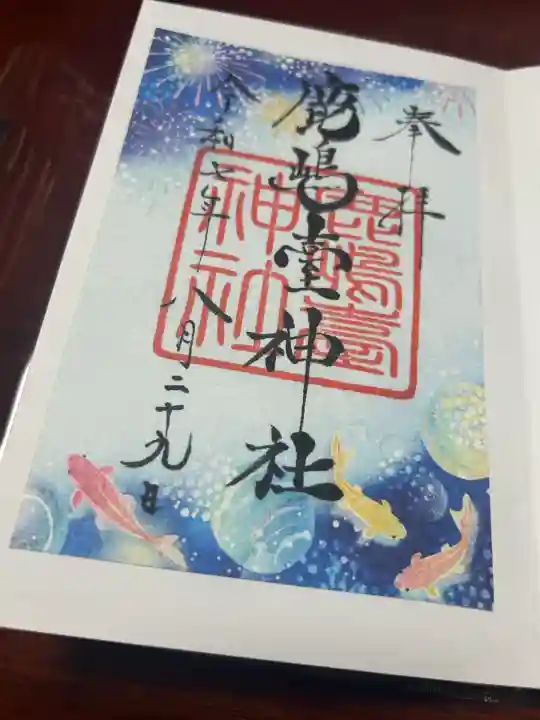 奉拝
鹿嶋臺神社
鹿嶋臺神社
令和七年八月二十九日